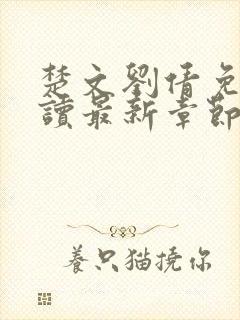 楚文劉倩免
讀最新章節
養只猫撓你